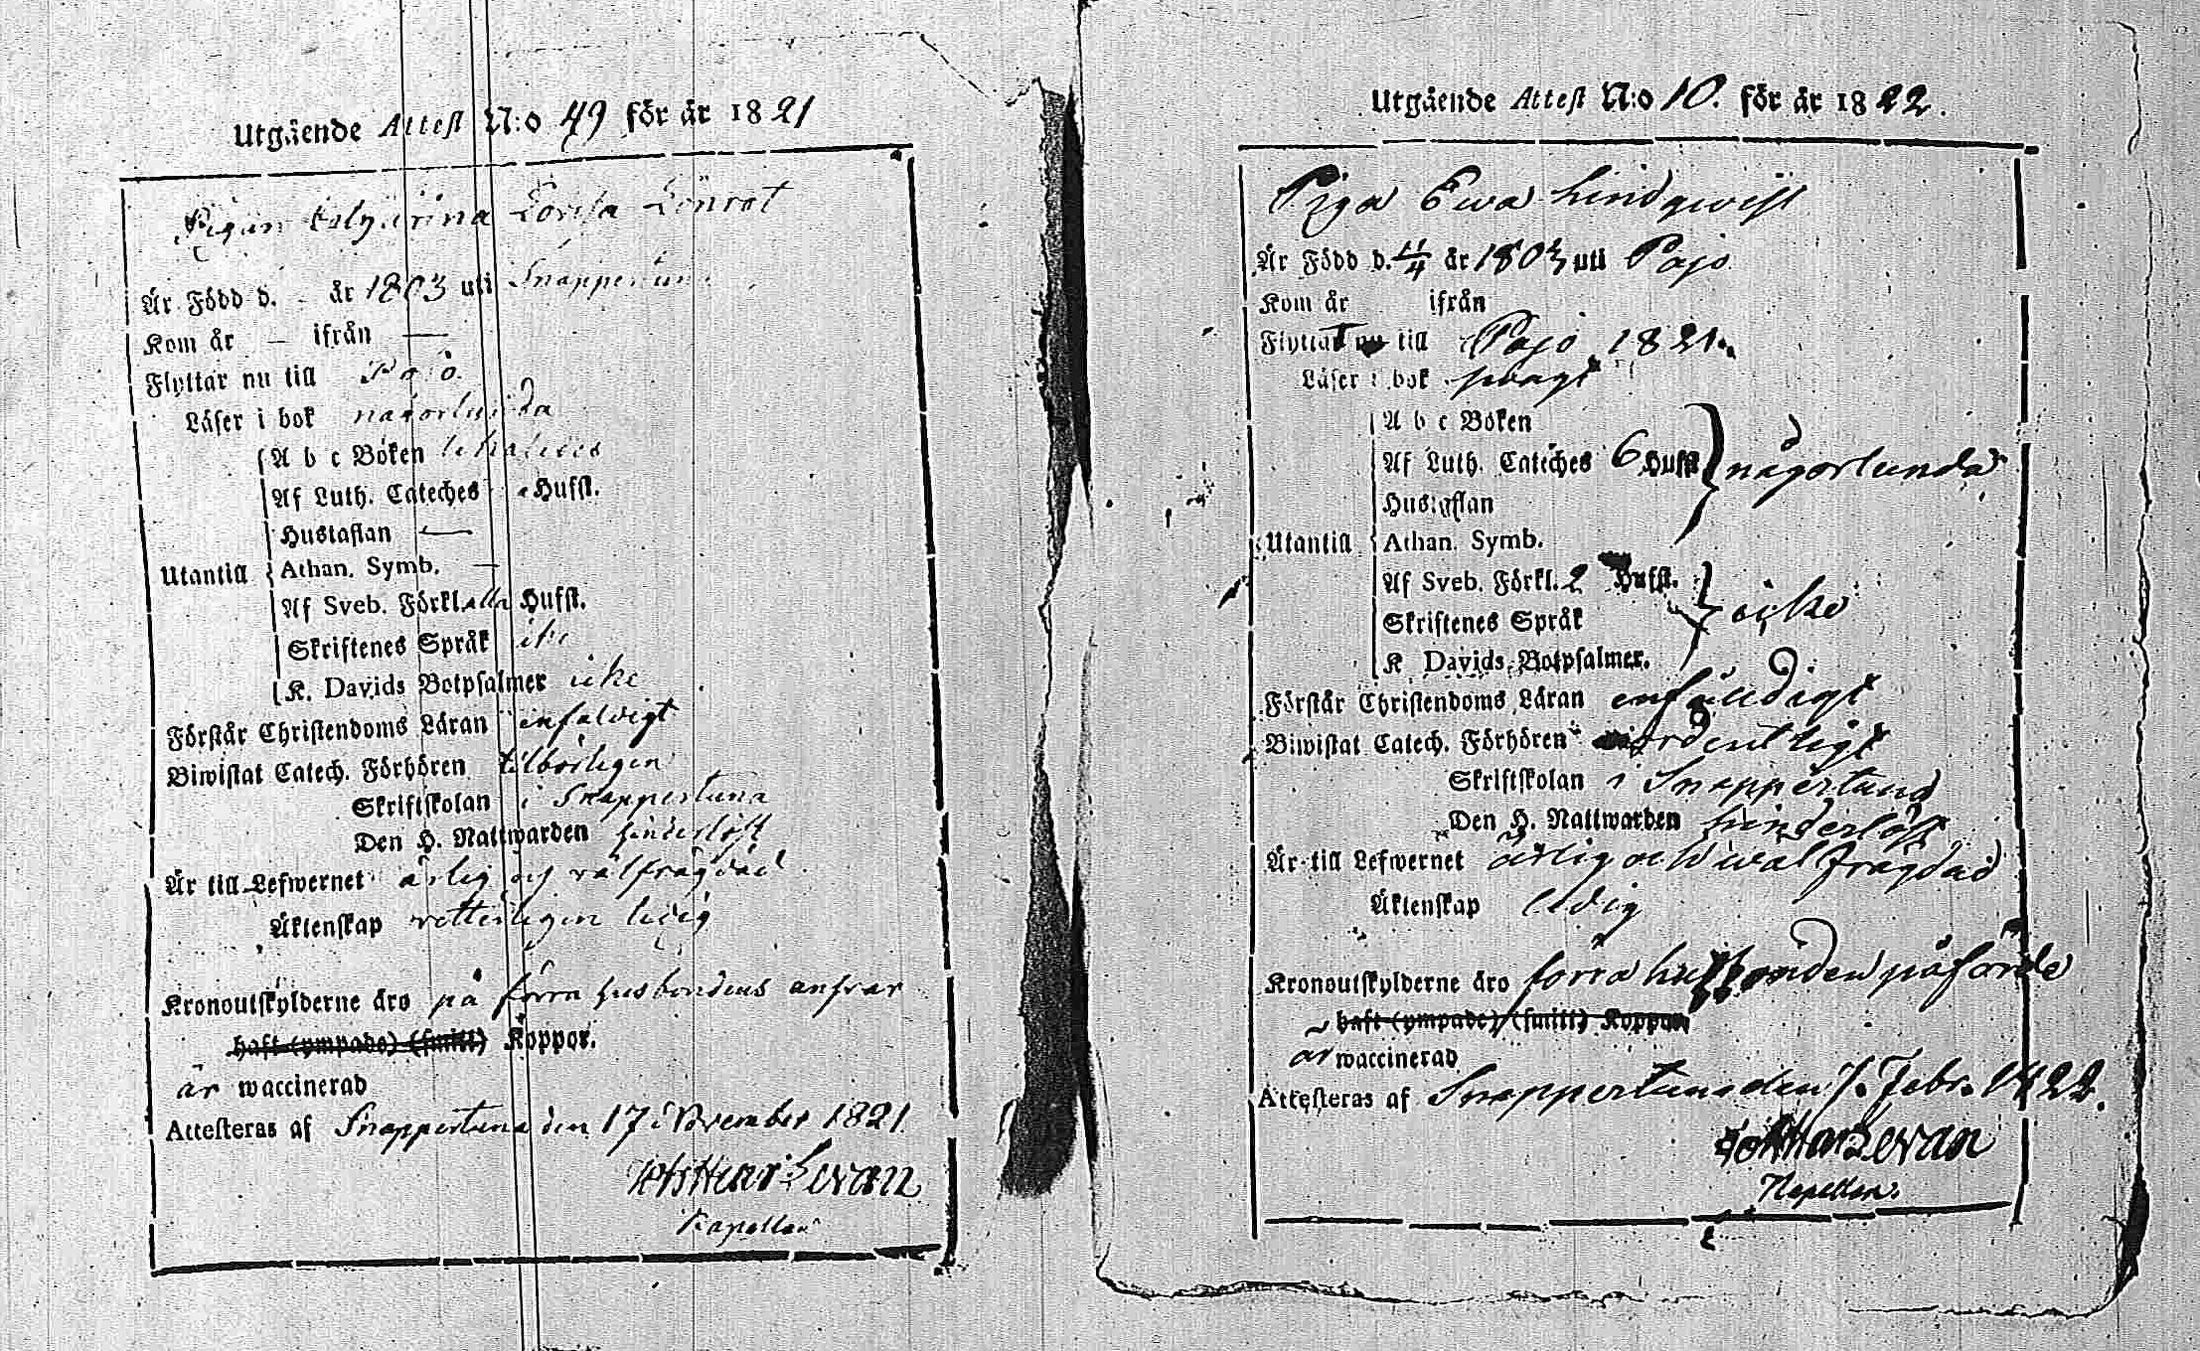 Utgående Attest N:o 49 för år 1821
Pigan Lovisa Lönrot
Är Född d. - år 1803 uti Snappertuna
Kom år — ifrån —
Flyttar nu till Pojo
Läser i bok någorlunda
A b c Boken
Af Luth. Cateches Hufst.
Hustaflan —
Utantill Athan. Symb. —
Af Sveb. Förkl. alla Hufst.
Skriftenes Språk icke
K. Davids Botpsalmer icke
Förstår Christendoms Läran enfaldigt
Biwistat Catech. Förhören tilbörligen
Skriftskolan i Snappertuna
Den H. Nattwarden hinderlöst
Är till Lefwernet ärlig och välfrägdad
Äktenskap ledig
Kronoutskylderne äro på förra husbondens
haft (ympade) (smitt) Koppor.
är waccinerad
Attesteras af Snappertuna den 17 November 1821
Kapellan
Utgående Attest N:o 10. för år 1822.
Piga Ewa Lindqwist
Är Född d. 11/4 år 1803 uti Pojo
Kom år ifrån
Flyttat nu till Pojo 1821.
Läser i bok swagt
A b c Boken
Af Luth. Cateches 6 Hufst. någorlunda
Hustaflan
Utantill Athan. Symb.
Af Sveb. Förkl. 2 Hufst.
Skriftenes Språk icke
K Davids Botpsalmer.
Förstår Christendoms Läran enfaldigt
Biwistat Catech. Förhören ordentligt
Skriftskolan i Snappertuna
Den H. Nattwarden hinderlöst
Är till Lefwernet ärlig och wälfrägdad
Äktenskap ledig
Kronoutskylderne äro förra husbonden påförde
haft (ympade) (smitt) Koppor
är waccinerad
Attesteras af Snappertuna den 7. Febr. 1822.
Kapellan.